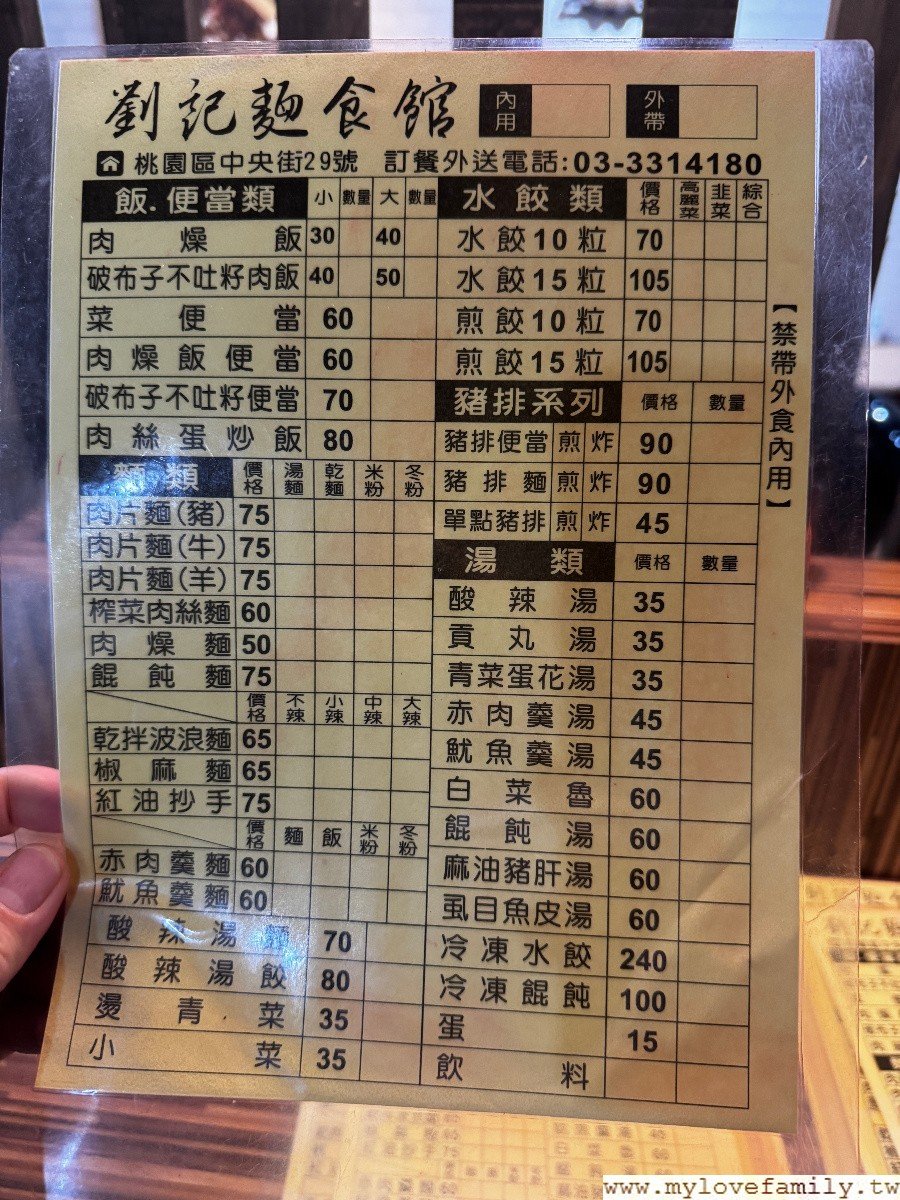 劉記麵食館 內用 外帶
桃園區中央街29號 訂餐外送電話:03-3314180
飯.便當類 小 數量 大 數量
肉燥飯 30 40
破布子不吐籽肉飯 40 50
菜便當 60
肉燥飯便當 60
破布子不吐籽便當 70
肉絲蛋炒飯 80
麵類 價格 湯麵 乾麵 米粉 冬粉
肉片麵(豬) 75
肉片麵(牛) 75
肉片麵(羊) 75
榨菜肉絲麵 60
肉燥麵 50
餛飩麵 75
價格 不辣 小辣 中辣 大辣
乾拌波浪麵 65
椒麻麵 65
紅油抄手 75
價格 麵 飯 米粉 冬粉
赤肉羹麵 60
魷魚羹麵 60
酸辣湯麵 70
酸辣湯餃 80
燙青菜 35
小菜 35
水餃類 價格 高麗菜 韭菜 綜合
水餃10粒 70
水餃15粒 105
煎餃10粒 70
煎餃15粒 105
豬排系列 價格 數量
豬排便當 煎 炸 90
豬排麵 煎 炸 90
單點豬排 煎 炸 45
湯類 價格 數量
酸辣湯 35
貢丸湯 35
青菜蛋花湯 35
赤肉羹湯 45
魷魚羹湯 45
白菜魯 60
餛飩湯 60
麻油豬肝湯 60
虱目魚皮湯 60
冷凍水餃 240
冷凍餛飩 100
蛋 15
飲料
【禁帶外食內用】
www.mylovefamily.tw